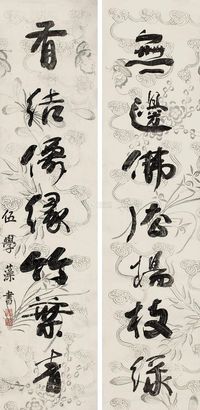 無邊佛法楊枝綠
有結僊緣竹葉青
伍學藻書